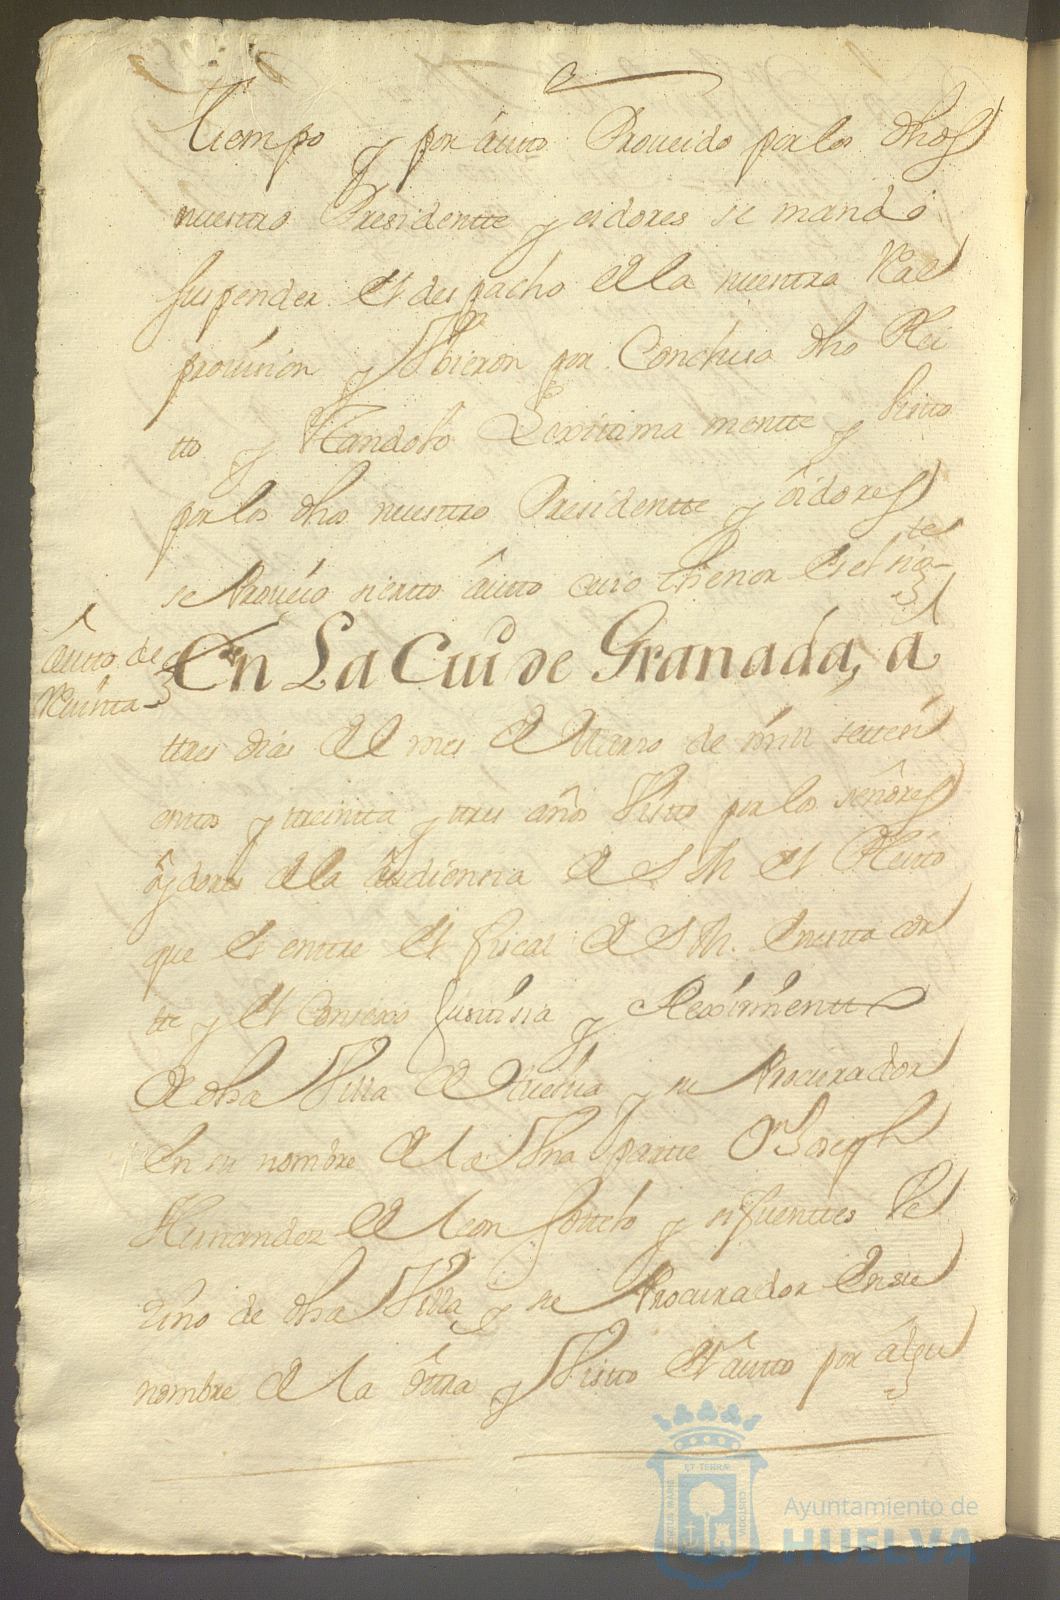 tiempo y por âutto Proueido por los dhos
nuestro Presidentte y oidores se mandó
suspender el despacho de la nuestra Real
prouision y Vbieron por Conchuso dho Plei
tto y Vandolo Lexitima mentte y Vistto
por los dhos nuestro Presidentte y ôidores
se Proueio sierto âutto cuio thenor es el sigte
âutto de
Reuista
En La Ciud de Granada, a
ttres dias del mes de Marzo de mill settesi
enttos y treintta y tres años Visto por los señores
ôydores de la Audiencia de S M el Pleitto
que es enttre el fiscal de S M. en estta cor
tte y el Consexo Justisia y Reximientto
de dha Villa de Huelua y su Procurador
en su nombre de la Vna partte Dn Joseph
Hernandez de leon sottelo y sifuenttes Ve
zino de dha Villa y su Procurador en su
nombre de la ôttra y Visto el âutto por algu
Ayuntamiento de
HUELVA